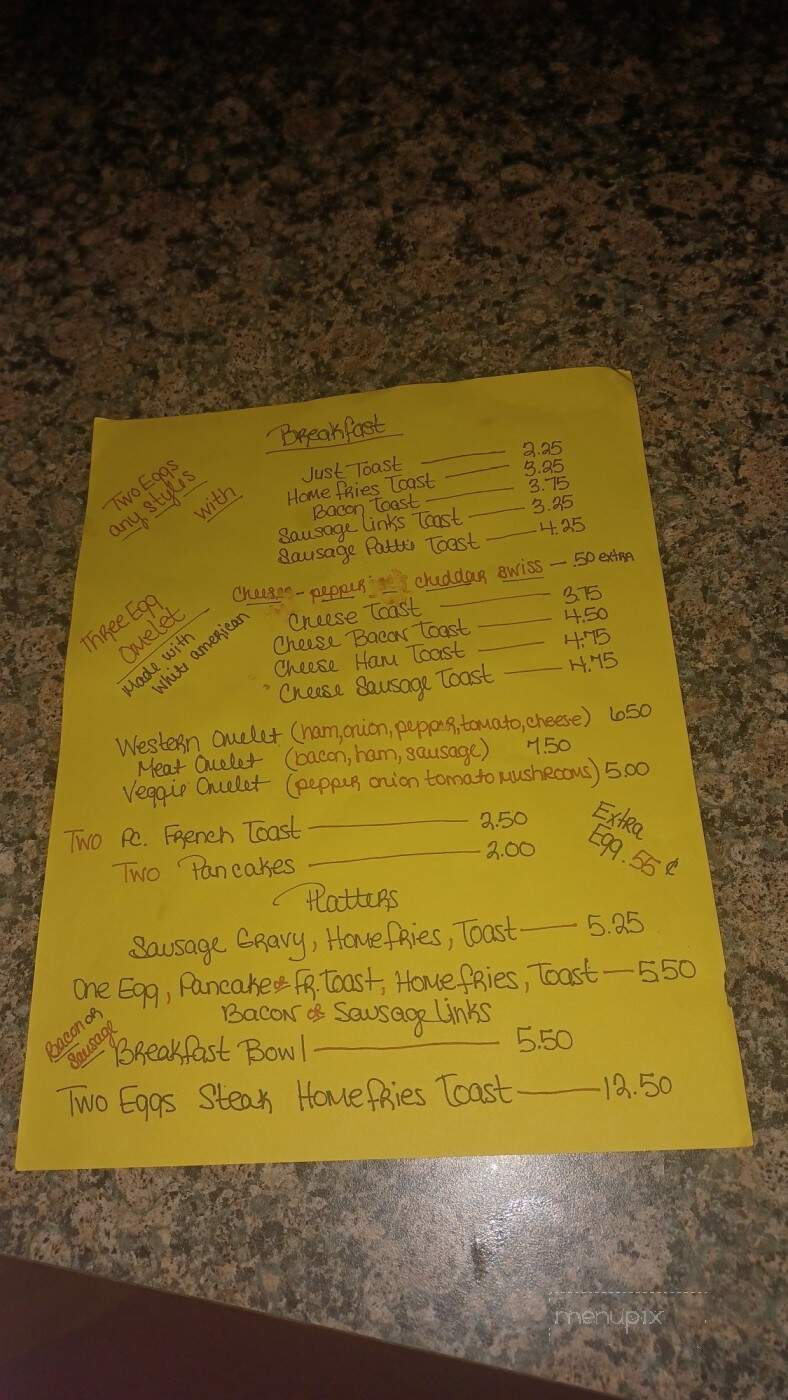 Breakfast
Two Eggs
any styles
with
Just Toast 2.25
Home fries Toast 3.25
Bacon Toast 3.75
Sausage links Toast 3.25
Sausage Patti Toast 4.25
Cheese - pepper cheddar swiss - .50 extra
Three Egg
Omelet
Made with
White american
Cheese Toast 3.75
Cheese Bacon Toast 4.50
Cheese Ham Toast 4.75
Cheese Sausage Toast 4.75
Western Omelet (ham, onion, pepper, tomato, cheese) 6.50
Meat Omelet (bacon, ham, sausage) 7.50
Veggie Omelet (pepper onion tomato mushrooms) 5.00
Two Pc. French Toast 2.50
Two Pancakes 2.00
Extra
Egg .55 ¢
Platters
Sausage Gravy, Homefries, Toast 5.25
One Egg, Pancake or Fr. Toast, Homefries, Toast 5.50
Bacon or Sausage Links
Bacon or
Sausage
Breakfast Bowl 5.50
Two Eggs Steak Homefries Toast 12.50
menupix